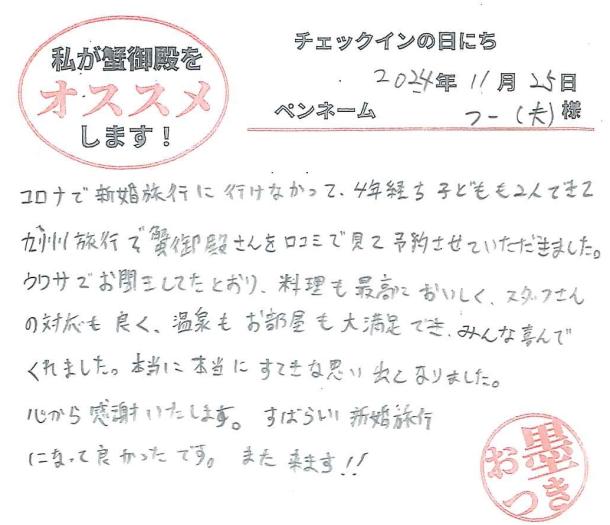 私が蟹御殿を
オススメ
します！
チェックインの日にち
2024年 11月 25日
ペンネーム つー（夫）様
コロナで新婚旅行に行けなかって、4年経ち子どもも2人できて
九州旅行で蟹御殿さんを口コミで見て予約させていただきました。
ウワサでお聞きしてたとおり、料理も最高においしく、スタッフさん
の対応も良く、温泉もお部屋も大満足でき、みんな喜んで
くれました。本当に本当にすてきな思い出となりました。
心から感謝いたします。すばらしい新婚旅行
になって良かったです。また来ます!!
お墨つき